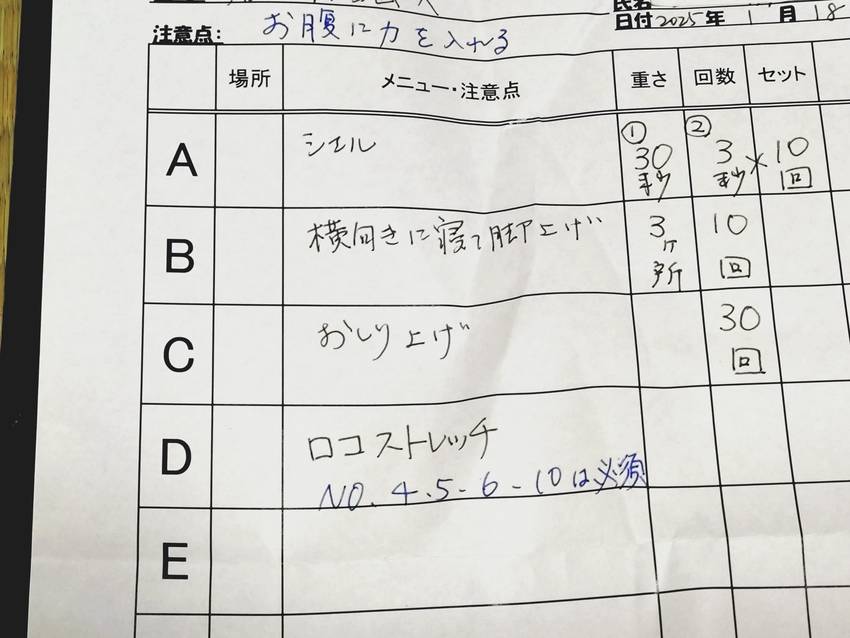 氏名
日付 2025年 1月 18
注意点: お腹に力を入れる
場所 メニュー・注意点 重さ 回数 セット
A シエル ①30秒 ②3秒×10回
B 横向きに寝て脚上げ 3ヶ所 10回
C おしり上げ 30回
D ロコストレッチ
NO. 4.5-6-10は必須
E